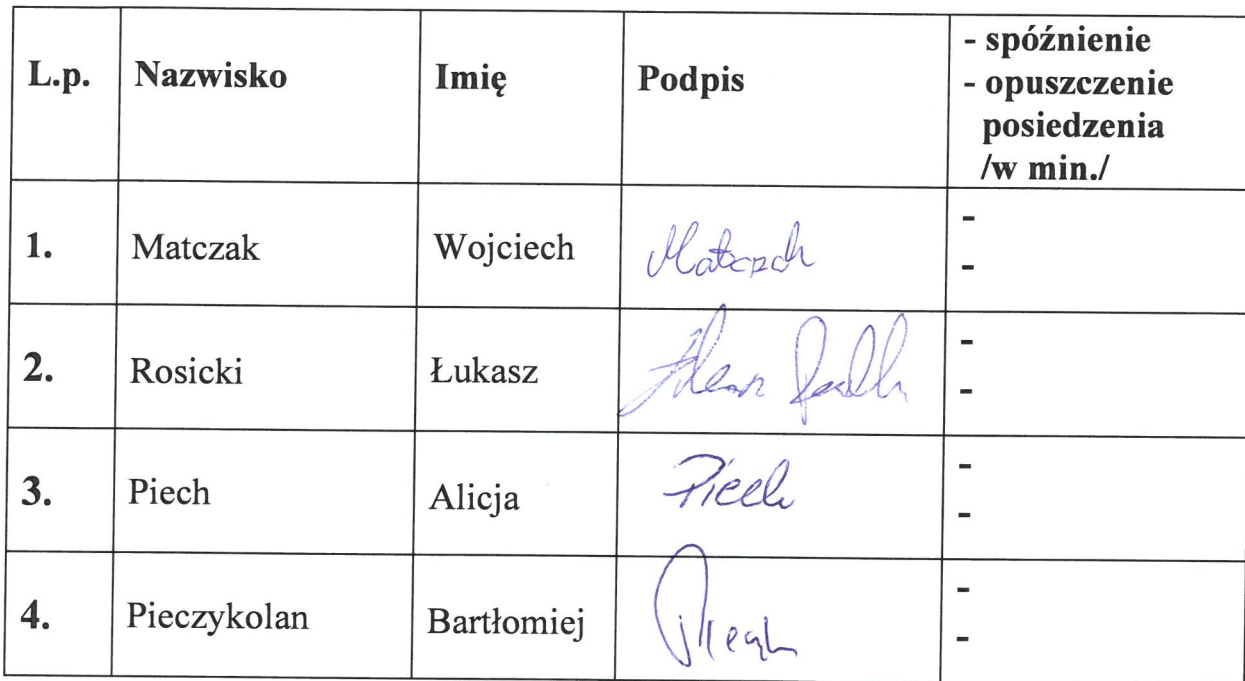 L.p. Nazwisko Imię Podpis - spóźnienie
- opuszczenie
posiedzenia
/w min./
1. Matczak Wojciech Matczak -
-
2. Rosicki Łukasz -
-
3. Piech Alicja Piech -
-
4. Pieczykolan Bartłomiej -
-